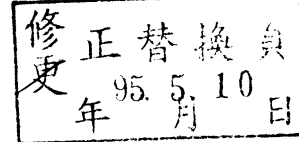 修正替換頁
更
95. 5. 10
年 月 日